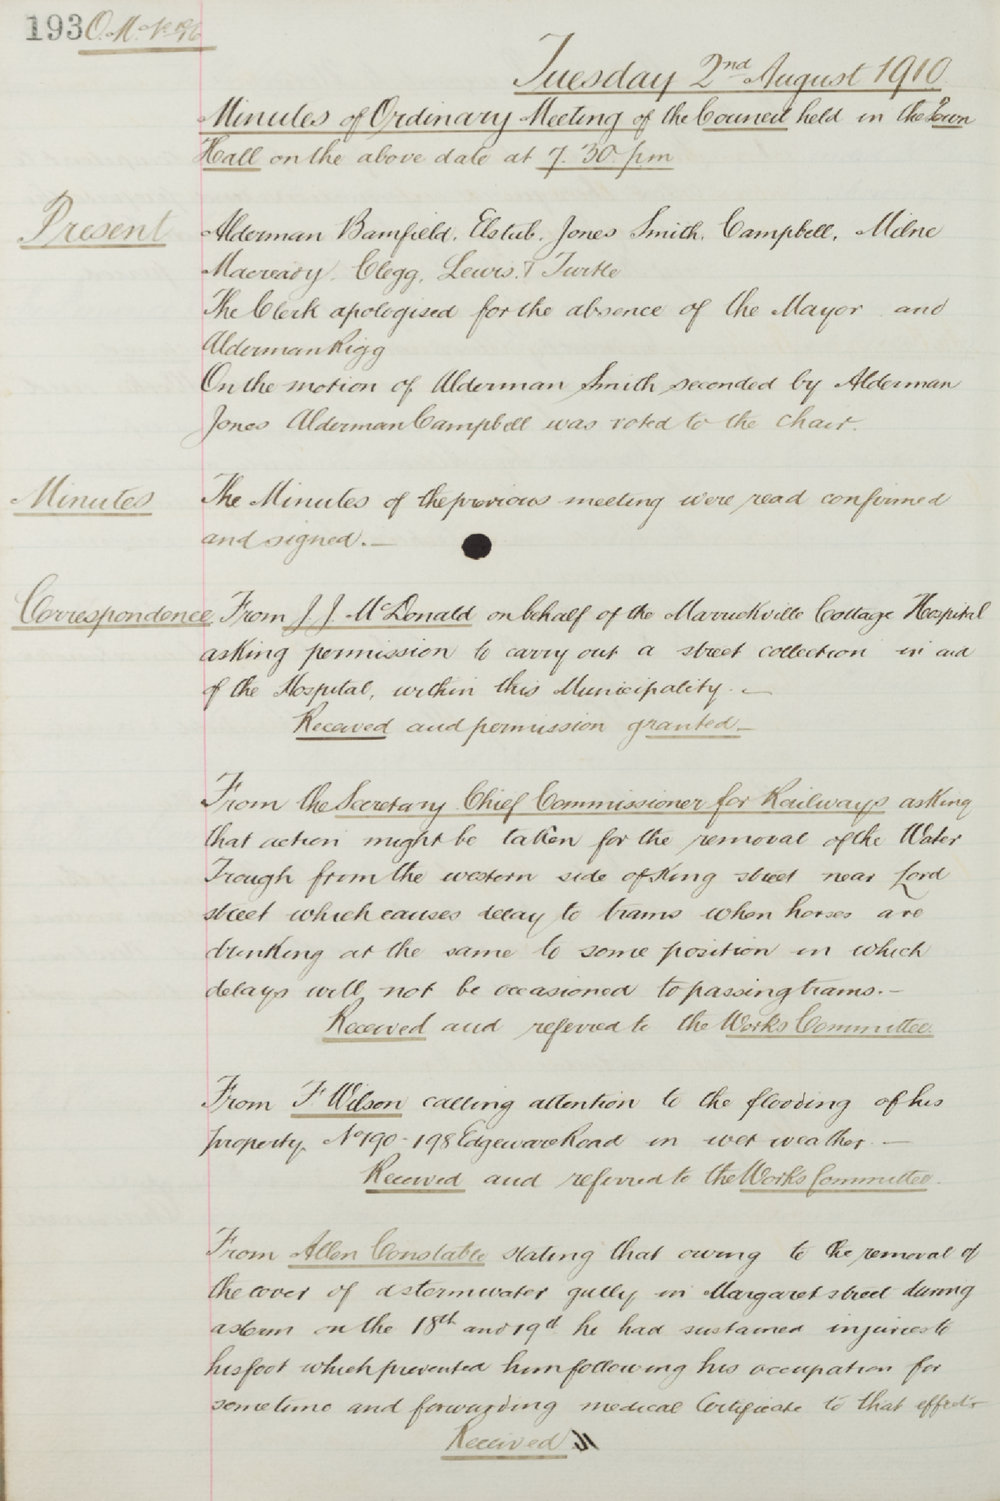 193 O. M. No 196
Tuesday 2nd August 1910
Minutes of Ordinary Meeting of the Council held in the Town
Hall on the above date at 7.30 pm
Present
Alderman Bamfield. Elstub. Jones Smith. Campbell. Milne
Macready. Clegg. Lewis. & Turtle
The Clerk apologised for the absence of the Mayor and
Alderman Rigg
On the motion of Alderman Smith seconded by Alderman
Jones Alderman Campbell was voted to the Chair.
Minutes
The Minutes of the previous meeting were read confirmed
and signed.—
Correspondence
From J. J. McDonald on behalf of the Marrickville Cottage Hospital
asking permission to carry out a street collection in aid
of the Hospital, within this Municipality.—
Received and permission granted—
From the Secretary Chief Commissioner for Railways asking
that action might be taken for the removal of the Water
Trough from the western side of King street near Lord
street which causes delay to trams when horses are
drinking at the same to some position in which
delays will not be occasioned to passing trams.—
Received and referred to the Works Committee.
From F Wilson calling attention to the flooding of his
property No 190-198 Edgeware Road in wet weather.—
Received and referred to the Works Committee.
From Allen Constable stating that owing to the removal of
the cover of a stormwater gully in Margaret street during
a storm on the 18th and 19th he had sustained injuries to
his foot which prevented him following his occupation for
sometime and forwarding medical Certificate to that effect—
Received